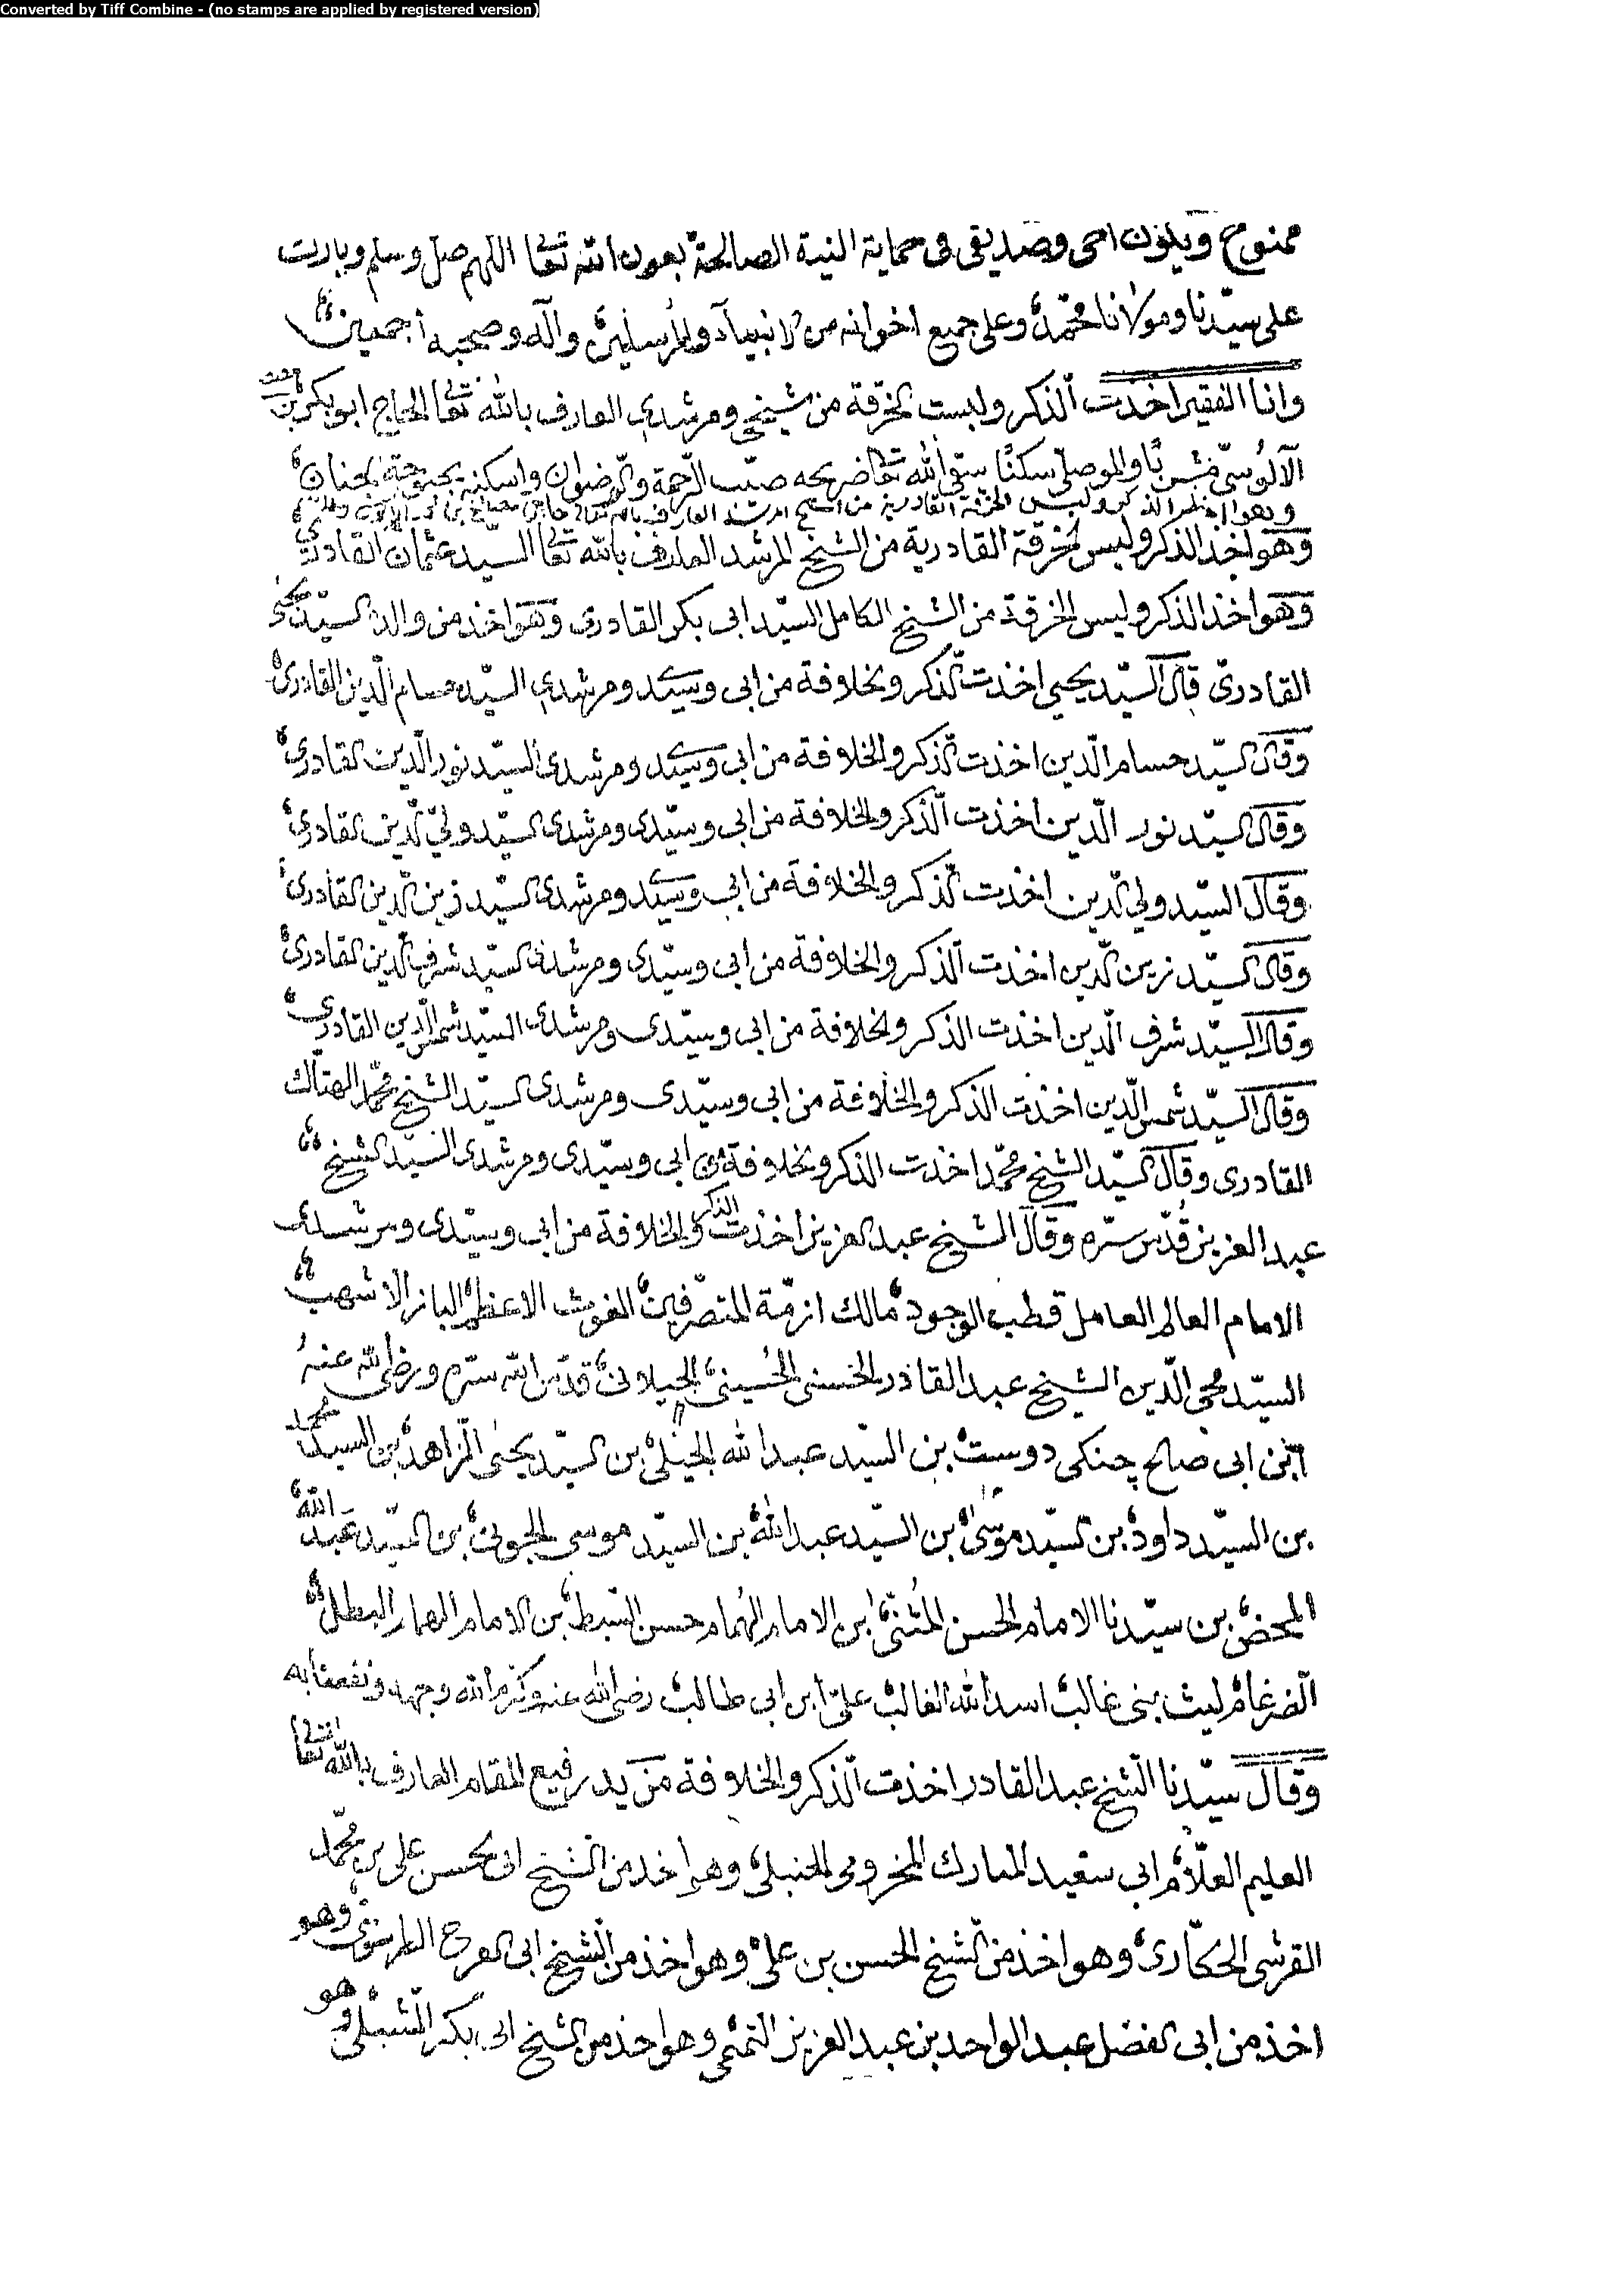 Converted by Tiff Combine - (no stamps are applied by registered version)
ممنوح ويكون اخى وصديقى فى حماية النية الصالحة بعون الله تعا اللهم صل وسلم وبارك
على سيّدنا ومولانا محمّد وعلى جميع اخوانه من الانبيآء والمرسلين وآله وصحبه أجمعين
وانا الفقير اخذت الذكر ولبست الخرقة من شيخي ومرشدي العارف بالله تعا الحاج ابوبكر بن
الآلوسيّ والموصلي سكنًا سقى الله تعا ضريحه صيّب الرّحمة والرّضوان واسكنه بحبوحة الجنان
وهو اخذ الذكر ولبس الخرقة القادرية من الشيخ المرشد العارف بالله تعالى
وهو اخذ الذكر ولبس الخرقة القادرية من الشيخ المرشد العارف بالله تعا السيّد عثمان القادري
وهو اخذ الذكر ولبس الخرقة من الشيخ الكامل السيّد ابى بكر القادرى وهو اخذ من والده السيّد يحيى
القادرىّ قال السيّد يحيى اخذت الذكر والخلافة من ابى وسيّدى ومرشدي السيّد حسام الدّين القادرى
وقال السيّد حسام الدّين اخذت الذكر والخلافة من ابى وسيّدى ومرشدى السيّد نور الدّين القادرى
وقال السيّد نور الدّين اخذت الذّكر والخلافة من ابى وسيّدى ومرشدى السيّد وليّ الدّين القادرى
وقال السيّد ولي الدّين اخذت الذّكر والخلافة من ابى وسيّدى ومرشدى السيّد زين الدّين القادرى
وقال السيّد زين الدّين اخذت الذكر والخلافة من ابى وسيّدى ومرشدى السيّد شرف الدّين القادرى
وقال السيّد شرف الدّين اخذت الذكر والخلافة من ابى وسيّدى ومرشدى السيّد شمس الدّين القادرى
وقال السيّد شمس الدّين اخذت الذكر والخلافة من ابى وسيّدى ومرشدى السيّد الشيخ محمّد الهتّاك
القادرى وقال السيّد الشيخ محمّد اخذت الذكر والخلافة من ابى وسيّدى ومرشدى السيّد الشيخ
عبد العزيز قدّس سرّه وقال الشيخ عبد العزيز اخذت الذكر والخلافة من ابى وسيّدى ومرشدى
الامام العالم العامل قطب الوجود مالك ازمّة المتصرّفين الغوث الاعظم الباز الاشهب
السيّد محى الدّين الشيخ عبد القادر الحسنى الحُسينى الجيلانى قدّس الله سرّه ورضى الله عنهُ
ابن ابى صالح چنكى دوست بن السيّد عبد الله الجيلى بن السيّد يحيى الزاهد بن السيد محمد
بن السيّد داود بن السيّد موسىٰ بن السيّد عبد الله بن السيّد موسى الجون بن السيّد عبد الله
المحض بن سيّدنا الامام الحسن المثنى ابن الامام الهُمام حسن السّبط بن الامام الهمام البطل
الضرغام ليث بنى غالب اسد الله الغالب علىّ ابن ابى طالب رضى الله عنه وكرّم الله وجهه ونفعنا به
وقال سيّدنا الشيخ عبد القادر اخذت الذكر والخلافة من يد رفيع المقام العارف بالله تعا
العليم العلّام ابى سعيد المبارك المخرومى الحنبلى وهو اخذ من الشيخ ابى الحسن على بن محمّد
القرشى الحكّارى وهو اخذ من الشيخ الحسن بن على وهو اخذ من الشيخ ابى الفرج الطرسوسى وهو
اخذ من ابى الفضل عبد الواحد بن عبد العزيز التميمى وهو اخذ من الشيخ ابى بكر الشّبلى وهو